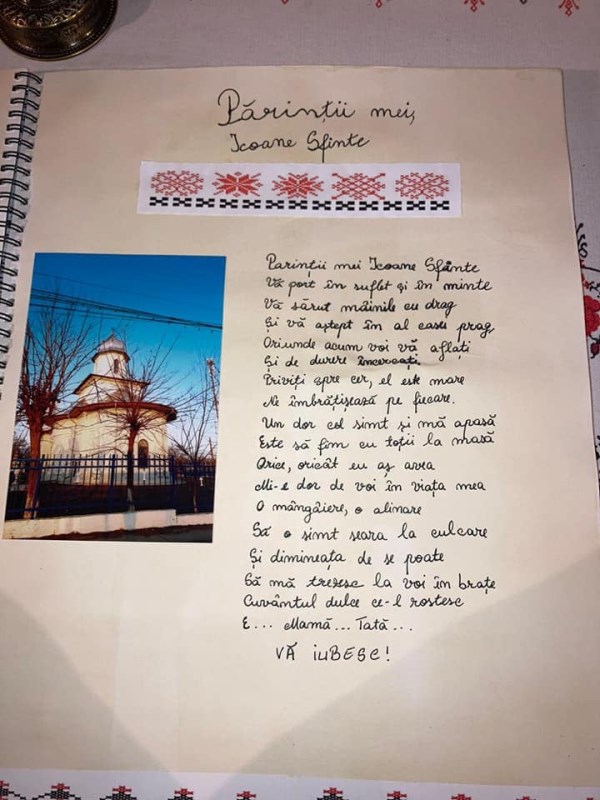 Părinții mei,
Icoane Sfinte
Parinții mei Icoane Sfinte
Vă port în suflet și în minte
Vă sărut mâinile cu drag
Și vă aștept în al casei prag
Oriunde acum voi vă aflați
Și de durere încercați.
Priviți spre cer, el este mare
Ne îmbrățișează pe fiecare.
Un dor cel simt și mă apasă
Este să fim cu toții la masă
Orice, oricât eu aș avea
Mi-e dor de voi în viața mea
O mângâiere, o alinare
Să o simt seara la culcare
Și dimineața de se poate
Să mă trezesc la voi în brațe
Cuvântul dulce ce-l rostesc
E... Mamă... Tată...
VĂ iUBESC!